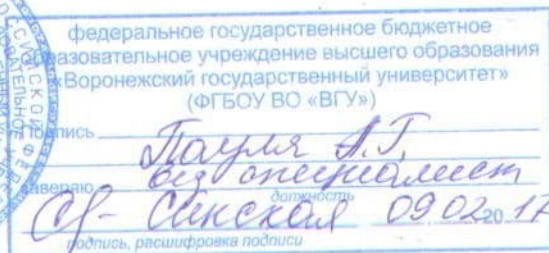 федеральное государственное бюджетное
образовательное учреждение высшего образования
«Воронежский государственный университет»
(ФГБОУ ВО «ВГУ»)
Подпись Пауля А.Г.
заверяю вед специалист
должность
Сенская 09 02 20 17
подпись, расшифровка подписи